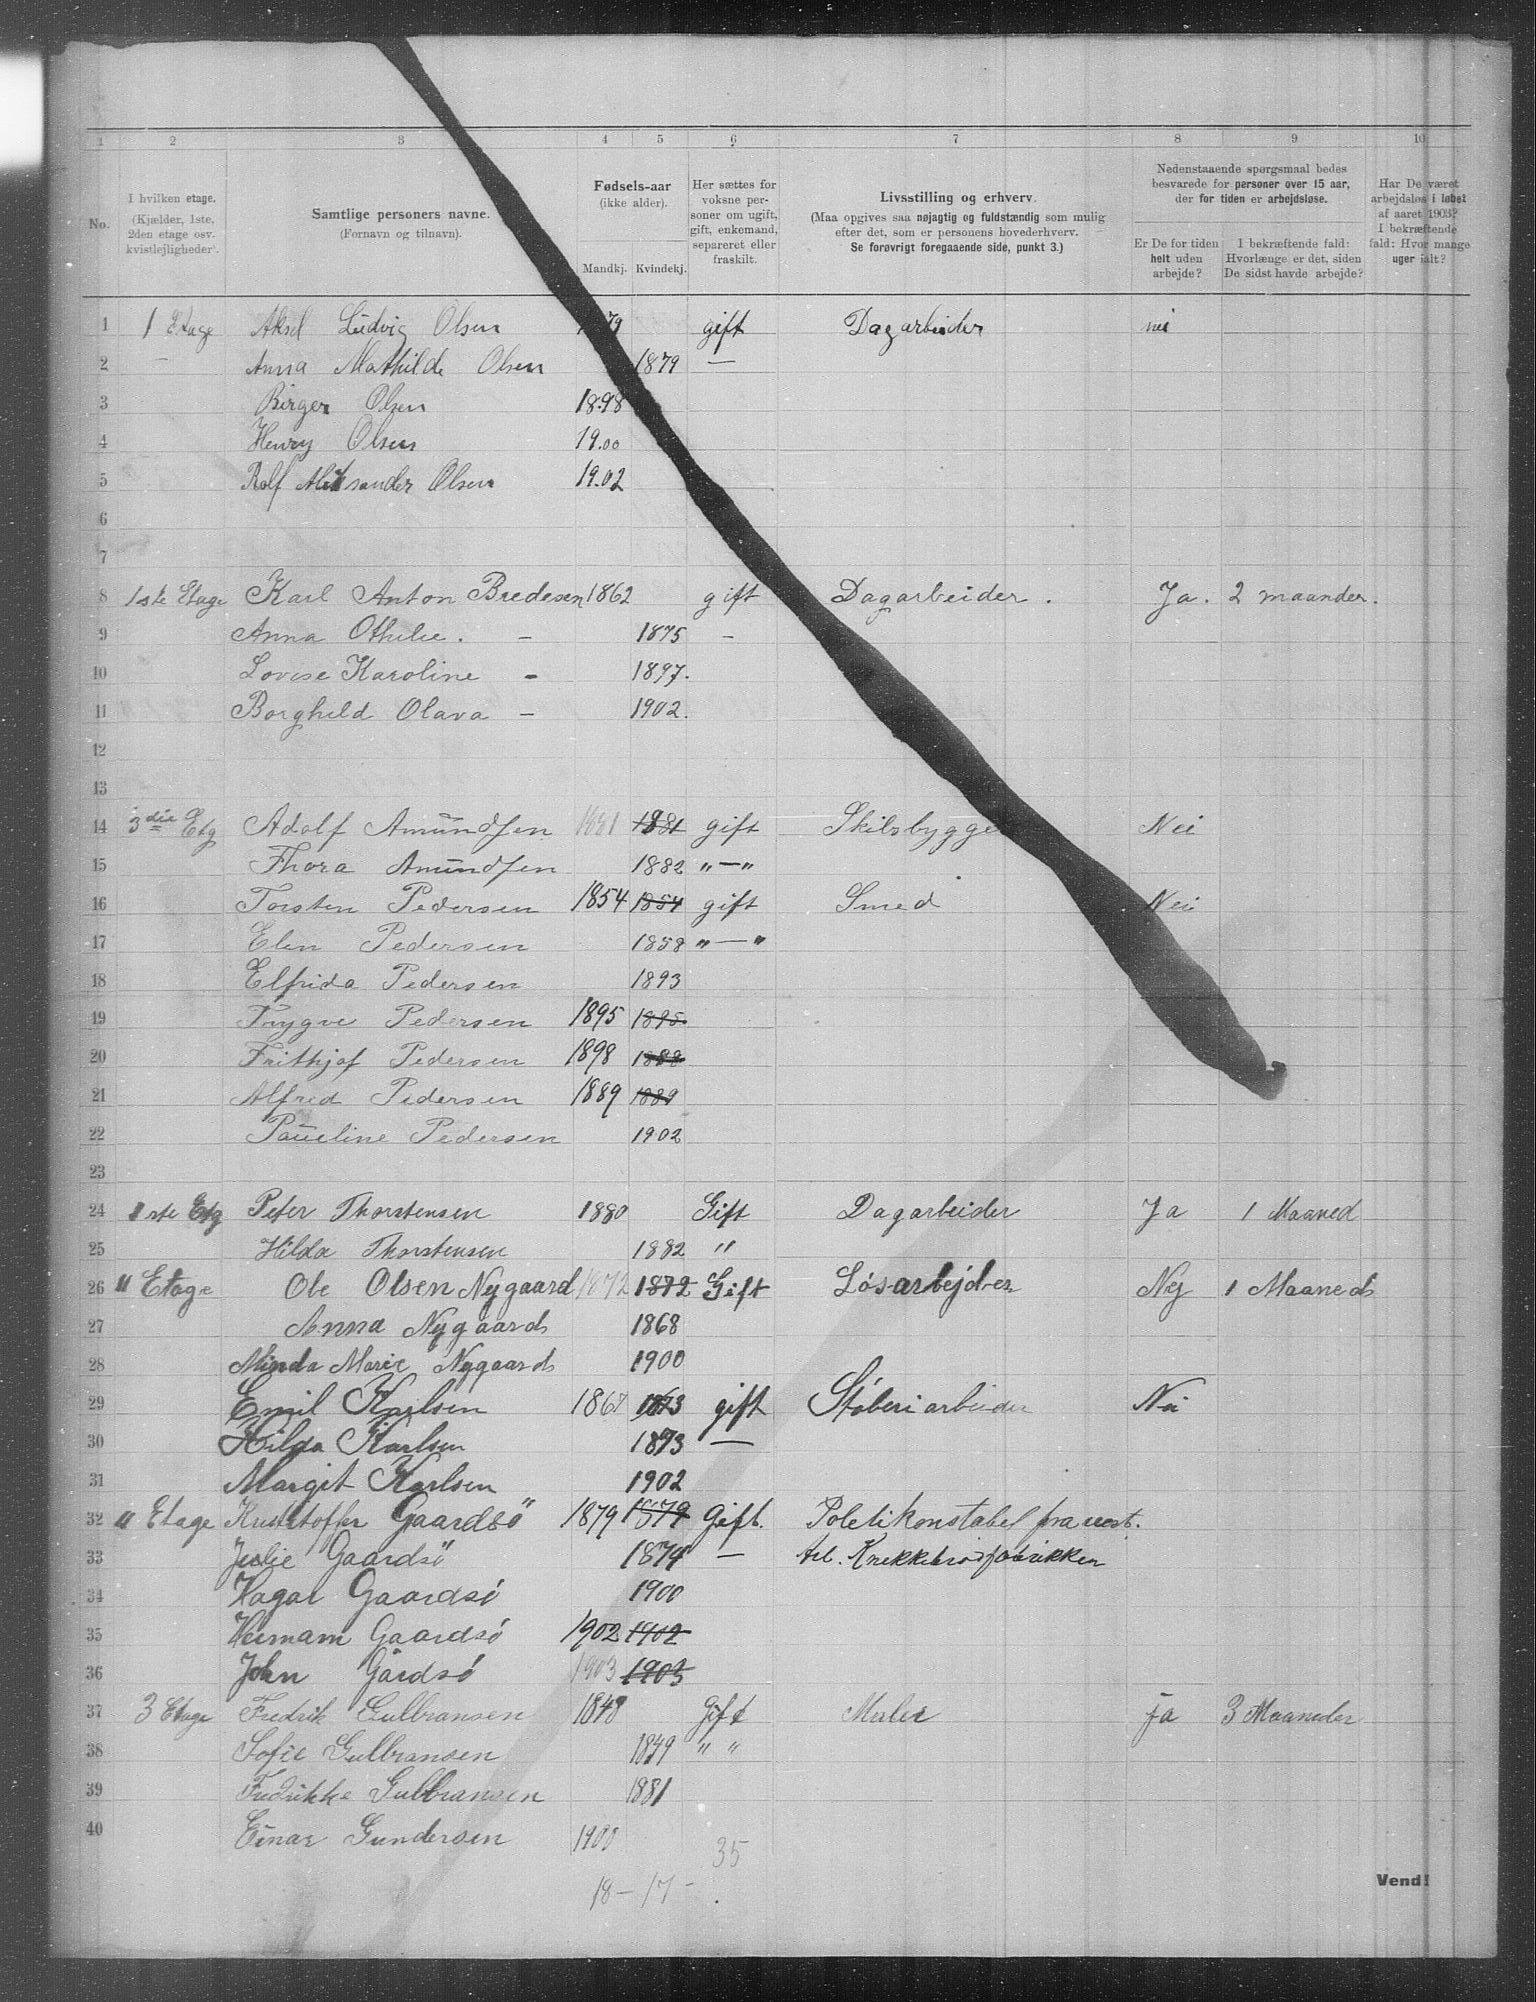 1 2 3 4 5 6 7 8 9 10
No.
I hvilken etage.
(Kjælder, 1ste,
2den etage osv.
kvistleiligheder).
Samtlige personers navne.
(Fornavn og tilnavn).
Fødsels-aar
(ikke alder).
Mandkj. Kvindekj.
Her sættes for
voksne per-
soner om ugift,
gift, enkemand,
separeret eller
fraskilt.
Livsstilling og erhverv.
(Maa opgives saa nøjagtig og fuldstændig som mulig
efter det, som er personens hovederhverv.
Se forøvrigt foregaaende side, punkt 3.)
Nedenstaaende spørgsmaal bedes
besvarede for personer over 15 aar,
der for tiden er arbejdsløse.
Er De for tiden
helt uden
arbejde?
I bekræftende fald:
Hvorlænge er det, siden
De sidst havde arbejde?
Har De været
arbejdsløs i løbet
af aaret 1903?
I bekræftende
fald: Hvor mange
uger ialt?
1 1 Etage Aksel Ludvig Olsen gift Dagarbeider nei
2 Anna Mathilde Olsen 1879 —
3 Birger Olsen 1898
4 Henry Olsen 19.00
5 Rolf Aleksander Olsen 19.02
6
7
8 1ste Etage Karl Anton Bredesen 1862 gift Dagarbeider. Ja. 2 maander.
9 Anna Othilie. – 1875 –
10 Lovise Karoline – 1897.
11 Borghild Olava – 1902.
12
13
14 3die Etg Adolf Amundsen 1881 1881 gift Skibsbygge Nei
15 Thora Amundsen 1882 "—"
16 Torsten Pedersen 1854 1854 gift Smed Nei
17 Elen Pedersen 1858 "—"
18 Elfrida Pedersen 1893
19 Trygve Pedersen 1895 1895
20 Frithjof Pedersen 1898 1898
21 Alfred Pedersen 1889 1889
22 Paueline Pedersen 1902
23
24 1ste Etg Peter Thorstensen 1880 Gift Dagarbeider Ja 1 Maaned
25 Hilda Thorstensen 1882 "
26 " Etage Ole Olsen Nygaard 1872 1872 Gift Løsarbejder Nej 1 Maaneds
27 Anna Nygaard 1868
28 Minda Marie Nygaard 1900
29 Emil Karlsen 1867 1873 gift Støberiarbeider Nei
30 Hilda Karlsen 1873 —
31 Margit Karlsen 1902
32 " Etage Kristoffer Gaardsø 1879 1879 Gift. Poletikonstabel fra vest.
33 Julie Gaardsø 1874 — til. Knekkebrødfabrikken
34 Hagar Gaardsø 1900
35 Hermam Gaardsø 1902 1902
36 John Gårdsø 1903 1903
37 3 Etage Fredrik Gulbransen 1848 Gift Maler ja 3 Maaneder
38 Sofie Gulbransen 1849 " "
39 Fredrikke Gulbransen 1881
40 Einar Gundersen 1900
35
18 – 17 –
Vend!